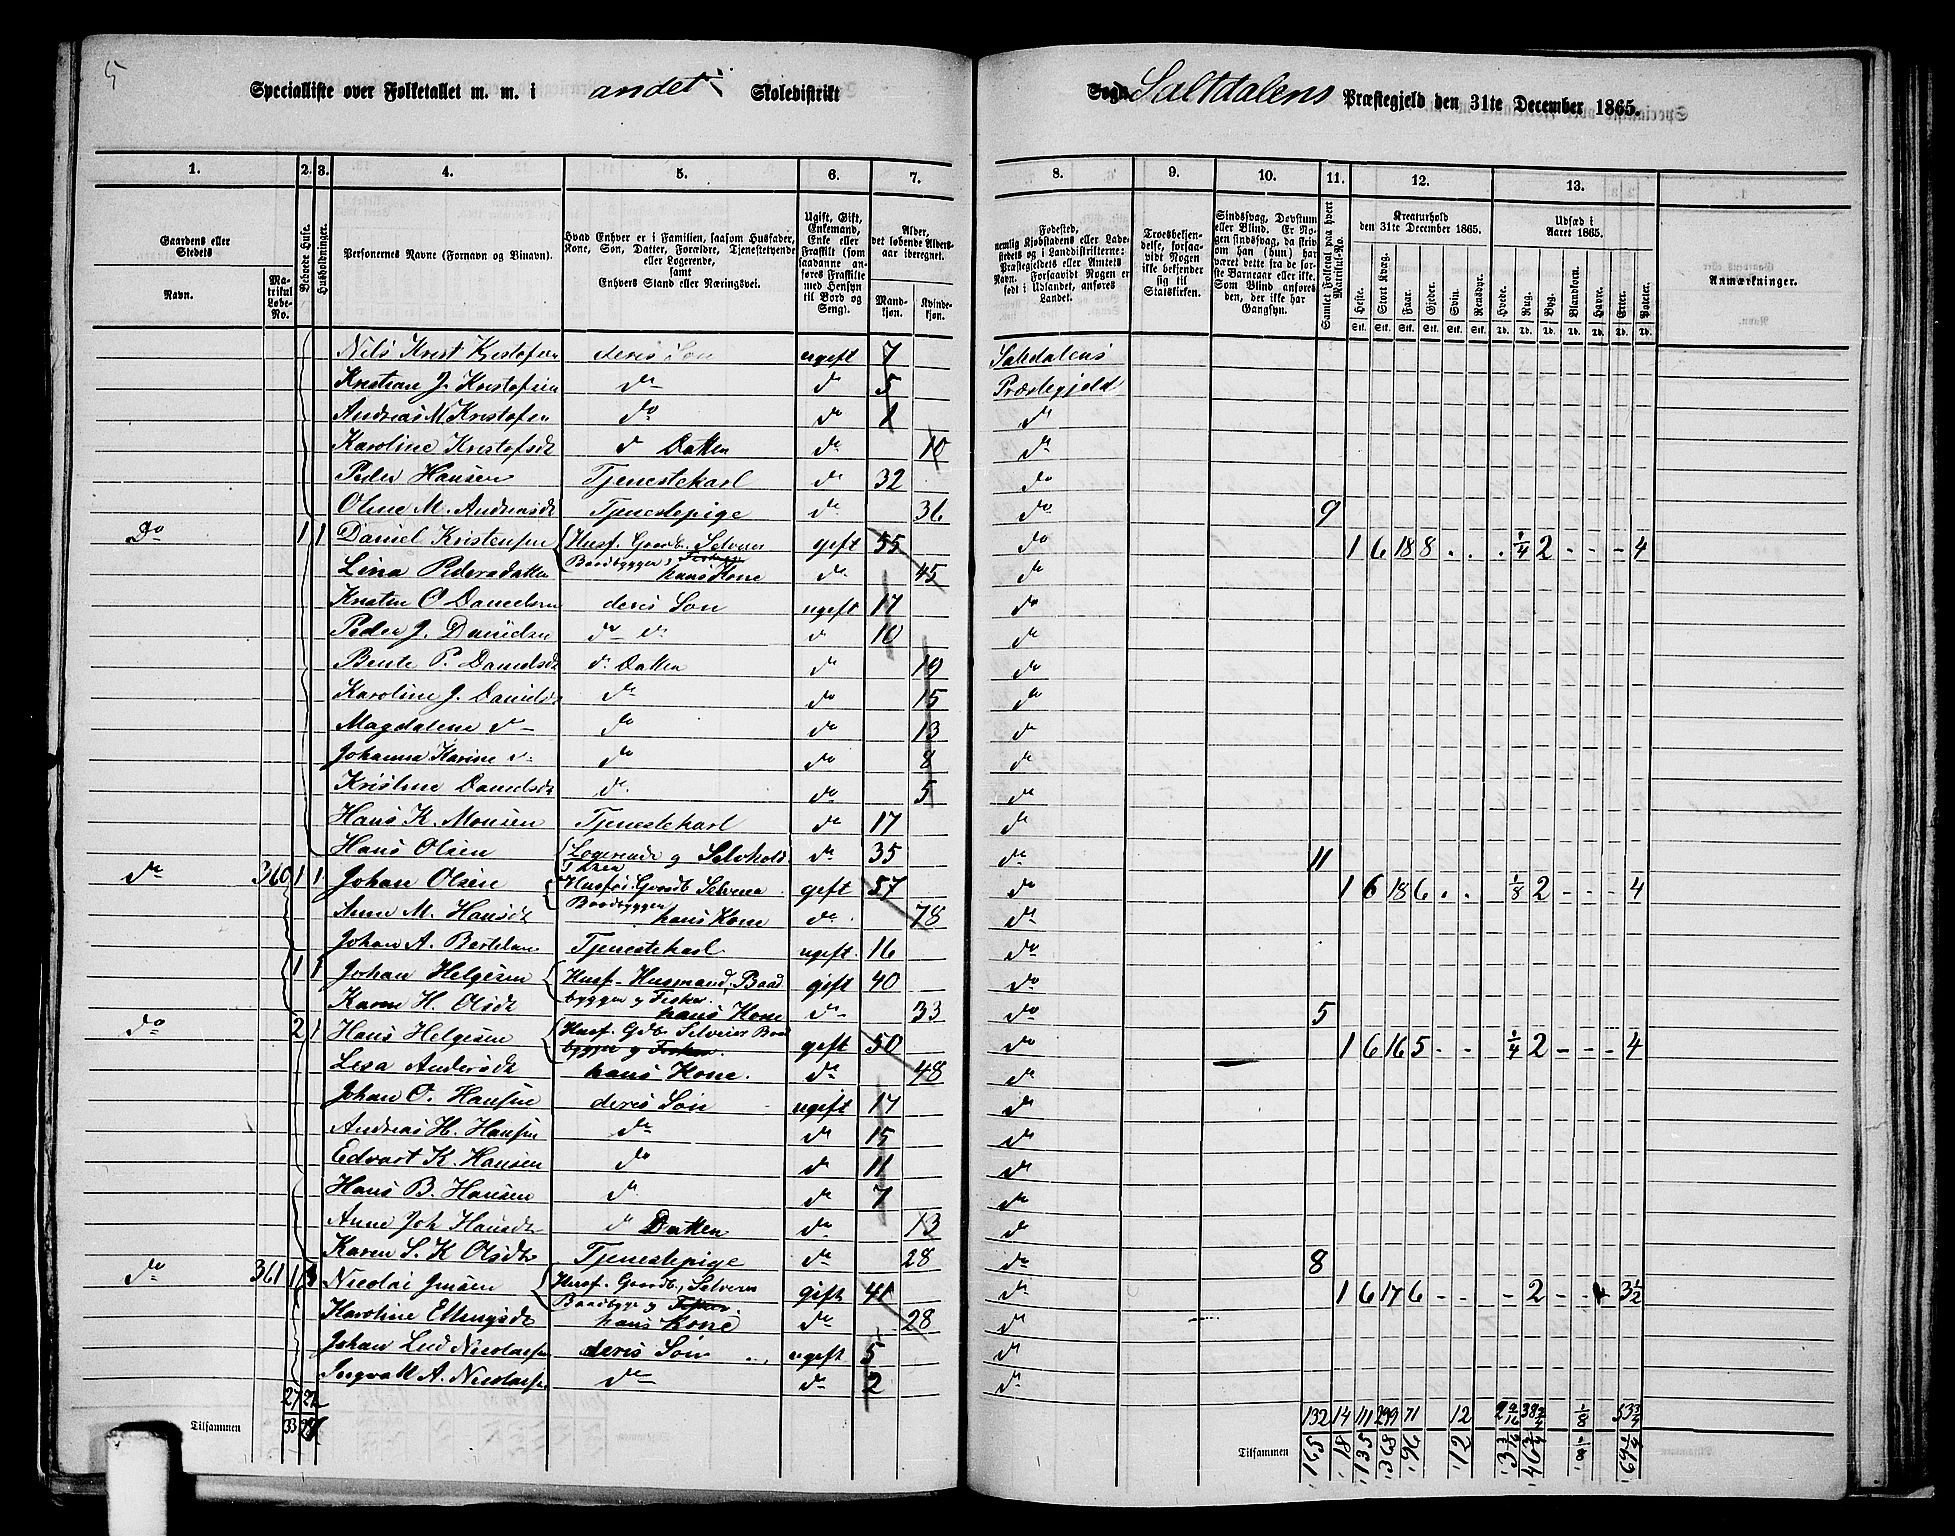 5
Specialliste over Folketallet m. m. i andet Skoledistrikt
Sogn Saltdalens Præstegjeld den 31te December 1865.
1. 2. 3. 4. 5. 6. 7. 8. 9. 10. 11. 12. 13.
Gaardens eller Stedets Navn. Matrikul Løbe-No.
Beboede Huse.
Husholdninger.
Personernes Navne (Fornavn og Binavn).
Hvad Enhver er i Familien, saasom Husfader, Kone, Søn, Datter, Forældre, Tjenestetyende eller Logerende, samt Enhvers Stand eller Næringsvei.
Ugift, Gift, Enkemand, Enke eller Fraskilt (som saadanne anføres Fraskilte med Hensyn til Bord og Seng).
Alder, det løbende Alders-aar iberegnet.
Mand-kjøn. Kvinde-kjøn.
Fødested, nemlig Kjøbstadens eller Ladestedets og i Landdistrikterne: Præstegjeldets eller Amtets Navn. Forsaavidt Nogen er født i Udlandet, anføres Landet.
Troesbekjendelse, forsaavidt Nogen ikke bekjender sig til Statskirken.
Sindssvag, Døvstum eller Blind. Er Nogen sindssvag, da skrives om han (hun) har været dette fra de første Barneaar eller ei. Som Blind anføres den, der ikke har Gangsyn.
Samlet Folketal paa hvert Matrikul-No.
Kreaturhold den 31te December 1865.
Heste. Stort Kvæg. Faar. Gjeder. Svin. Rensdyr.
Udsæd i Aaret 1865.
Hvede. Rug. Byg. Blandkorn. Havre. Erter. Poteter.
Stk. Stk. Stk. Stk. Stk. Stk. Td. Td. Td. Td. Td. Td. Td.
Anmærkninger.
Nils Krist Kristofsen deres Søn ugift 7 Saltdalens
Kristian J. Kristofsen do do 5 Præstegjeld
Andreas M Kristofsen do do 1 do
Karoline Kristofsdt d Datter do 10 do
Peder Hansen Tjenestekarl do 32 do
Oline M. Andreasdt Tjenestepige do 36 do 9
Do 1 1 Daniel Kristensen Husf. Gaardb. Selveier Baadbygger & Fisker gift 55 do 1 6 18 8 - - - 1/4 2 - - - 4
Lina Pedersdatter hans Kone do 45 do
Kristen O Danielsen deres Søn ugift 17 do
Peder J. Danielsen do do do 10 do
Bente P. Danielsdt d. Datter do 19 do
Karoline J. Danielsdt do do 15 do
Magdalene do do do 13 do
Johanna Karine do do do 8 do
Kristine Danielsdt do do 5 do
Hans K. Monsen Tjenestekarl do 17 do
Hans Olsen Logerende og Selvhold do 35 do 11
do 360 1 1 Johan Olsen Husf. Gaardb. Selveier Baadbygger gift 57 do 1 6 18 6 - - 1/8 2 - - - 4
Anne M. Hansdt hans Kone do 78 do
Johan A. Bertelsen Tjenestekarl ugift 16 do
1 1 Johan Helgesen Husf. Husmand, Baadbygger og Fisker. gift 40 do
Karen H. Olsdt hans Kone do 33 do 5
do 2 1 Hans Helgesen Husf. Gdb. Selveier Baadbygger og Fisker. gift 50 do 1 6 16 5 - - 1/4 2 - - - 4
Lesa Andersdt hans Kone. do 48 do
Johan O. Hansen deres Søn ugift 17 do
Andreas H. Hansen do do 15 do
Edvart K. Hansen do do 11 do
Hans B. Hansen do do 7 do
Anne Joh Hansdt d Datter do 13 do
Karen S. K Olsdt Tjenestepige do 28 do 8
do 361 1 1 Nicolai Jensen Husf. Gaardb, Selveier Baadbygger og Fisker. gift 41 do 1 6 17 6 - - - 2 - - 3 1/2
Karoline Ellingsdt hans Kone do 28 do
Johan Lud Nicolaisen deres Søn ugift 5 do
Ingvall A. Nicolaisen do do 2 do
27 22
132 14 111 299 71 12 2 9/16 38 3/4 1/8 53 3/4
Tilsammen 33
Tilsammen 165 18 135 368 96 12 3 3/16 46 3/4 1/8 69 1/4